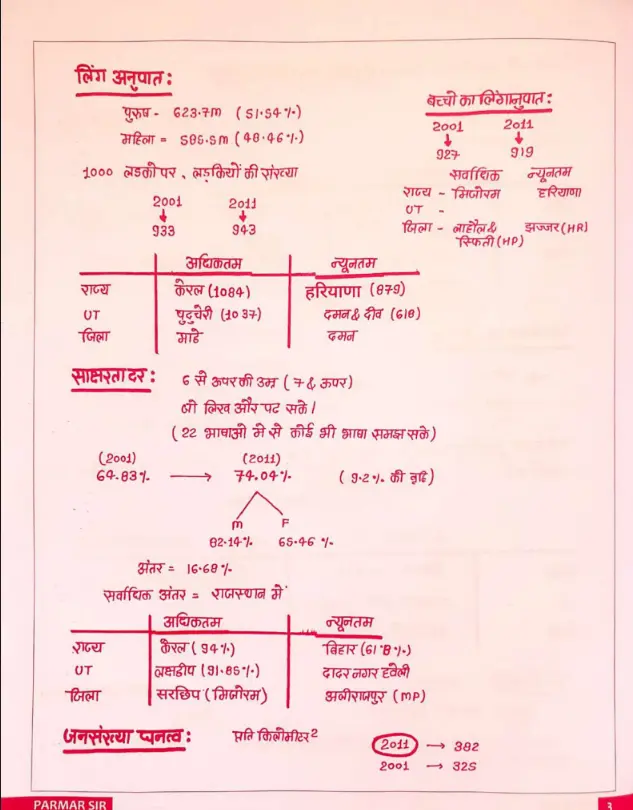 लिंग अनुपात :
पुरुष - 623.7m (51.54%)
महिला = 586.5m (48.46%)
1000 लडको पर, लड़कियों की संख्या
2001 2011
933 943
बच्चो का लिंगानुपात :
2001 2011
927 919
सर्वाधिक न्यूनतम
राज्य - मिजोरम हरियाणा
UT -
जिला - लाहौल & स्फिती (HP) झज्जर (HR)
अधिकतम न्यूनतम
राज्य केरल (1084) हरियाणा (879)
UT पुदुचेरी (1037) दमन & दीव (618)
जिला माहे दमन
साक्षरता दर : 6 से ऊपर की उम्र (7 & ऊपर)
जो लिख और पढ सके।
(22 भाषाओ मे से कोई भी भाषा समझ सके)
(2001) (2011)
64.83% → 74.04% (9.2% की वृद्धि)
m F
82.14% 65.46 %
अंतर = 16.68%
सर्वाधिक अंतर = राजस्थान में
अधिकतम न्यूनतम
राज्य केरल (94%) बिहार (61.8%)
UT लक्षद्वीप (91.85%) दादर नगर हवेली
जिला सरछिप (मिजोरम) अलीराजपुर (MP)
जनसंख्या घनत्व : प्रति किलोमीटर²
2011 → 382
2001 → 325
PARMAR SIR 3